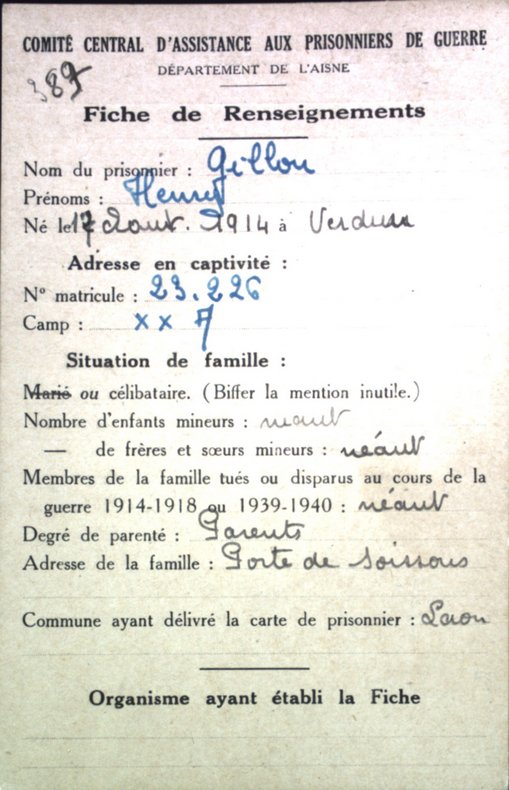 COMITÉ CENTRAL D'ASSISTANCE AUX PRISONNIERS DE GUERRE
DÉPARTEMENT DE L'AISNE
387
Fiche de Renseignements
Nom du prisonnier : Gillon
Prénoms : Henry
Né le 17 Août. 1914 à Verdun
Adresse en captivité :
N° matricule : 23.226
Camp : XX A
Situation de famille :
Marié ou célibataire. (Biffer la mention inutile.)
Nombre d'enfants mineurs : néant
— de frères et sœurs mineurs : néant
Membres de la famille tués ou disparus au cours de la
guerre 1914-1918 ou 1939-1940 : néant
Degré de parenté : Parents
Adresse de la famille : Porte de Soissons
Commune ayant délivré la carte de prisonnier : Laon
Organisme ayant établi la Fiche